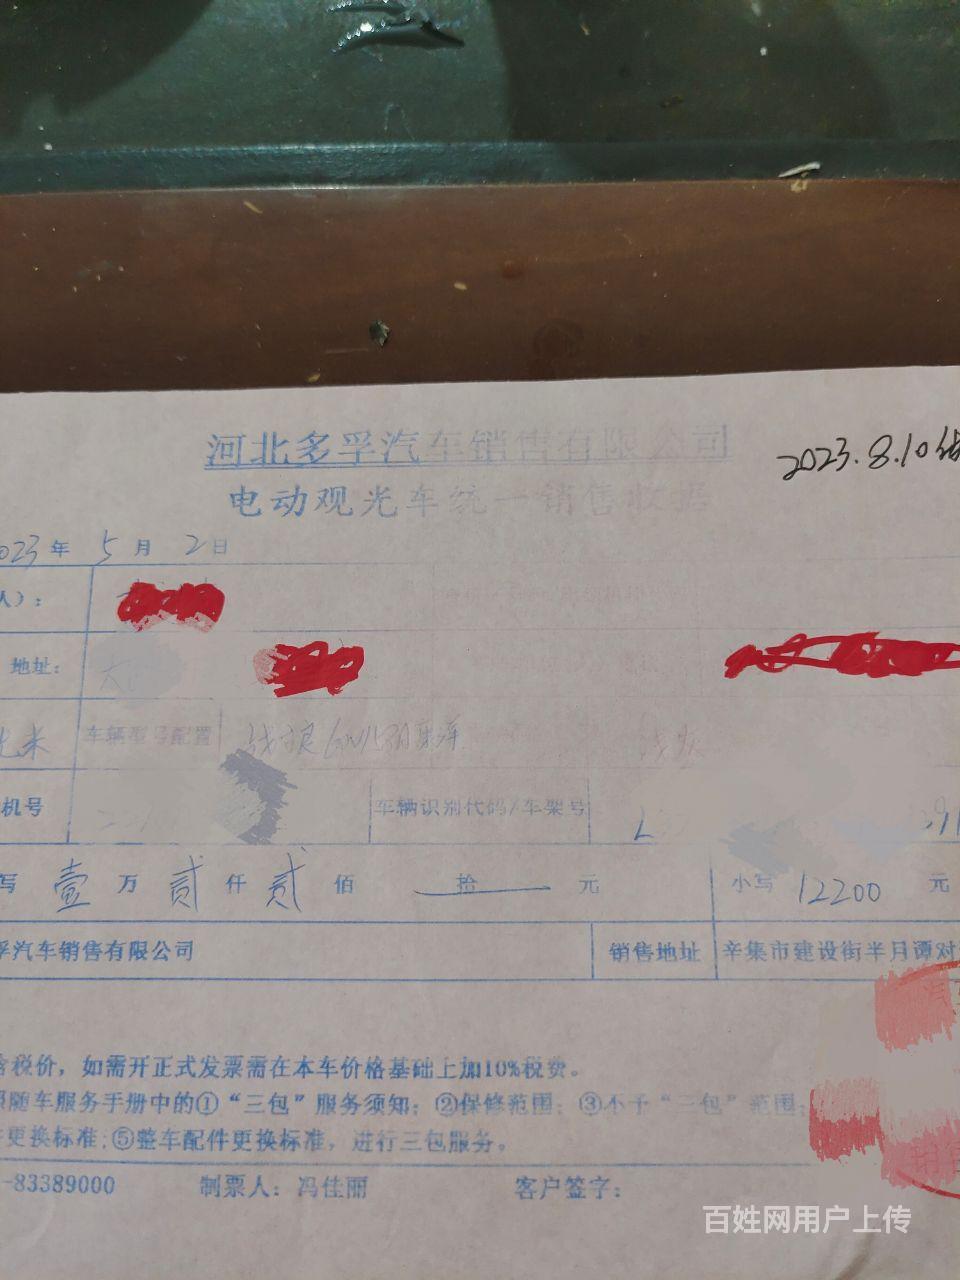 河北多孚汽车销售有限公司
2023.8.10
电动观光车统一销售收据
2023年 5月 2日
人）：
地址：
车辆型号配置
机号 车辆识别代码/车架号
写 壹 万 贰 仟 贰 佰 拾 元 小写 12200 元
孚汽车销售有限公司 销售地址 辛集市建设街半月谭对
含税价，如需开正式发票需在本车价格基础上加10%税费。
照随车服务手册中的①“三包”服务须知；②保修范围；③不予“三包”范围；
更换标准；⑤整车配件更换标准，进行三包服务。
-83389000 制票人：冯佳丽 客户签字：
百姓网用户上传